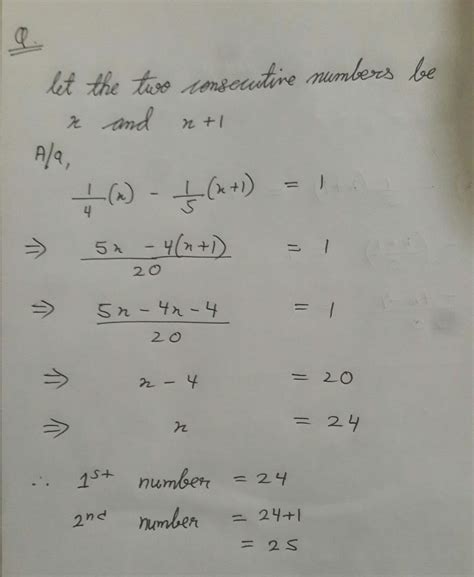 Q.
let the two consecutive numbers be
x and x+1
A/q,
1/4 (x) - 1/5 (x+1) = 1
⇒ 5x - 4(x+1) / 20 = 1
⇒ 5x - 4x - 4 / 20 = 1
⇒ x - 4 = 20
⇒ x = 24
∴ 1st number = 24
2nd number = 24+1
= 25